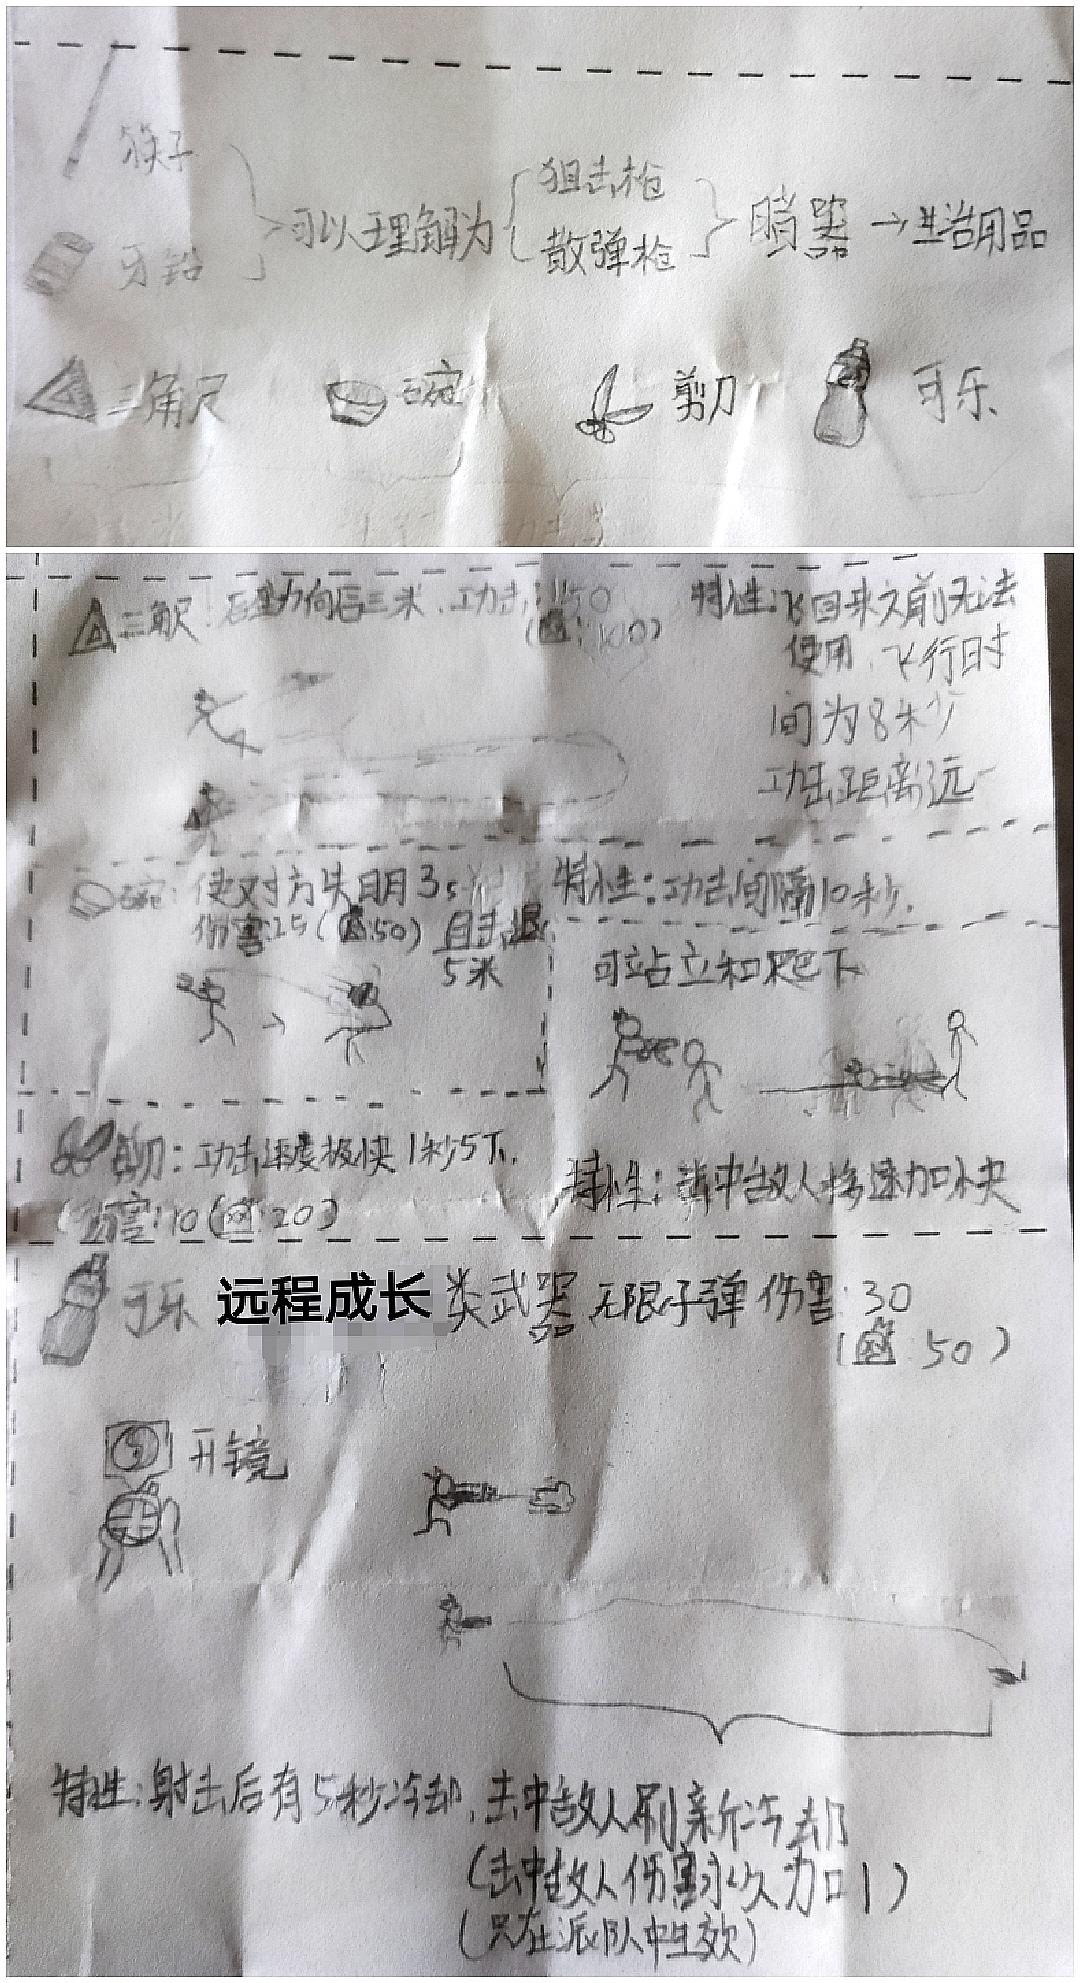 筷子
牙铅
可以理解为
狙击枪
散弹枪
暗器→生活用品
三角尺
碗
剪刀
可乐
三角尺:后坐力向后三米.功击:50
特性:飞回来之前无法
使用.飞行时
间为8秒
功击距离远
碗:使对方失明3s
伤害25( :50) 自击退
5米
特性:功击间隔10秒.
可站立和爬下
剪刀:功击速度极快1秒5下.
伤害:10( :20)
特性:击中敌人移速加快
可乐 远程成长类武器 无限子弹 伤害:30
( :50)
开镜
特性:射击后有5秒冷却,击中敌人刷新冷却
(击中敌人伤害永久加1)
(只在派队中生效)